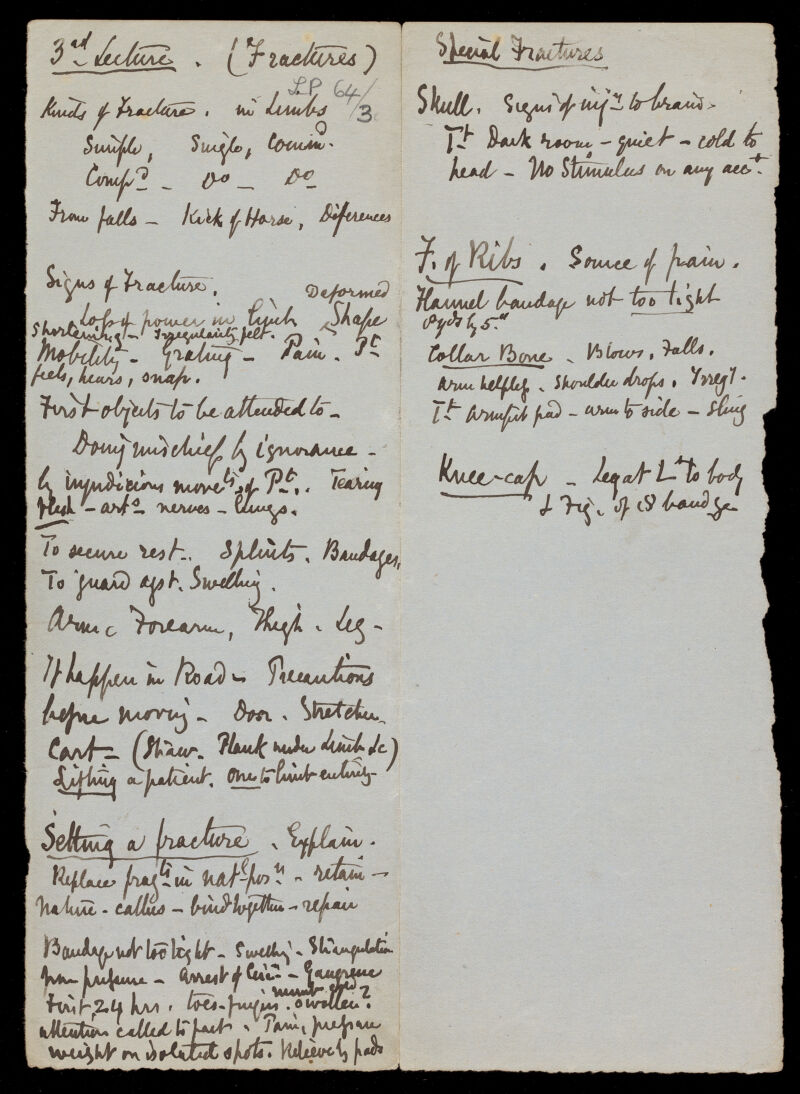 3rd Lecture. (Fractures)
L.P. 64/3
Kinds of Fracture. in Limbs
Simple, Single, Comm^d.
Comp^d - Do - Do
From falls - Kick of Horse, Differences
Signs of Fracture.
Deformed
Loss of power in limb Shape
Shortening - Irregularity felt.
Mobility - Grating - Pain. P^t
feels, hears, snap.
First objects to be attended to -
Doing mischief by ignorance -
by injudicious move^ts of P^t. Tearing
flesh - art^s nerves - lungs.
To secure rest. Splints. Bandages,
To guard agst. Swelling.
Arm, Forearm, Thigh. Leg -
If happen in Road - Precautions
before moving - Door. Stretcher
Cart - (Straw. Plank under Limb &c)
Lifting a patient. One to limb entirely
Setting a fracture. Explain.
Replace frag^ts in nat^l pos^n - retain -
Nature - callus - bind together - repair
Bandage not too tight - Swelling - Strangulation
from pressure - Arrest of Circ^n - Gangrene
numb cold
First 24 hrs. toes - fingers. swollen?
attention called to part. Pain, pressure
weight on isolated spots. Relieve by pads
Special Fractures
Skull. Signs of inj^y to brain.
T^t Dark room - quiet - cold to
head - No Stimulus on any acc^t.
F. of Ribs. Source of pain.
Flannel bandage not too tight
8 yds by 5."
Collar Bone - Blows, Falls.
Arm helpless. Shoulder drops. Irreg^y.
T^t Armpit pad - arm to side - Sling
Knee-cap - Leg at L^s to body
& Fig. of 8 bandge